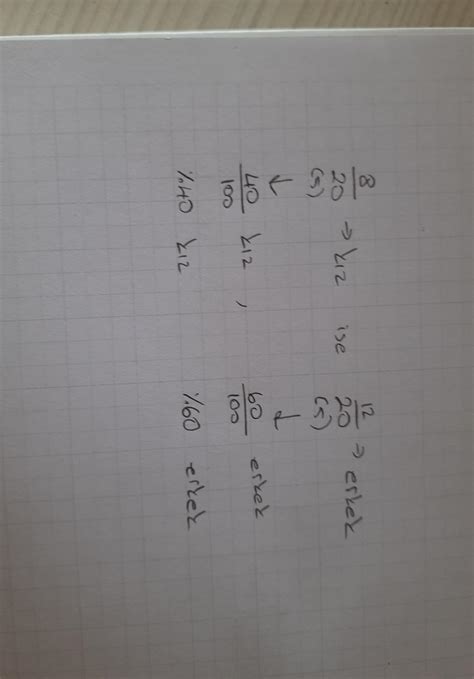 8/20 → kız ise 12/20 → erkek
(5) (5)
↓ ↓
40/100 kız , 60/100 erkek
%40 kız %60 erkek